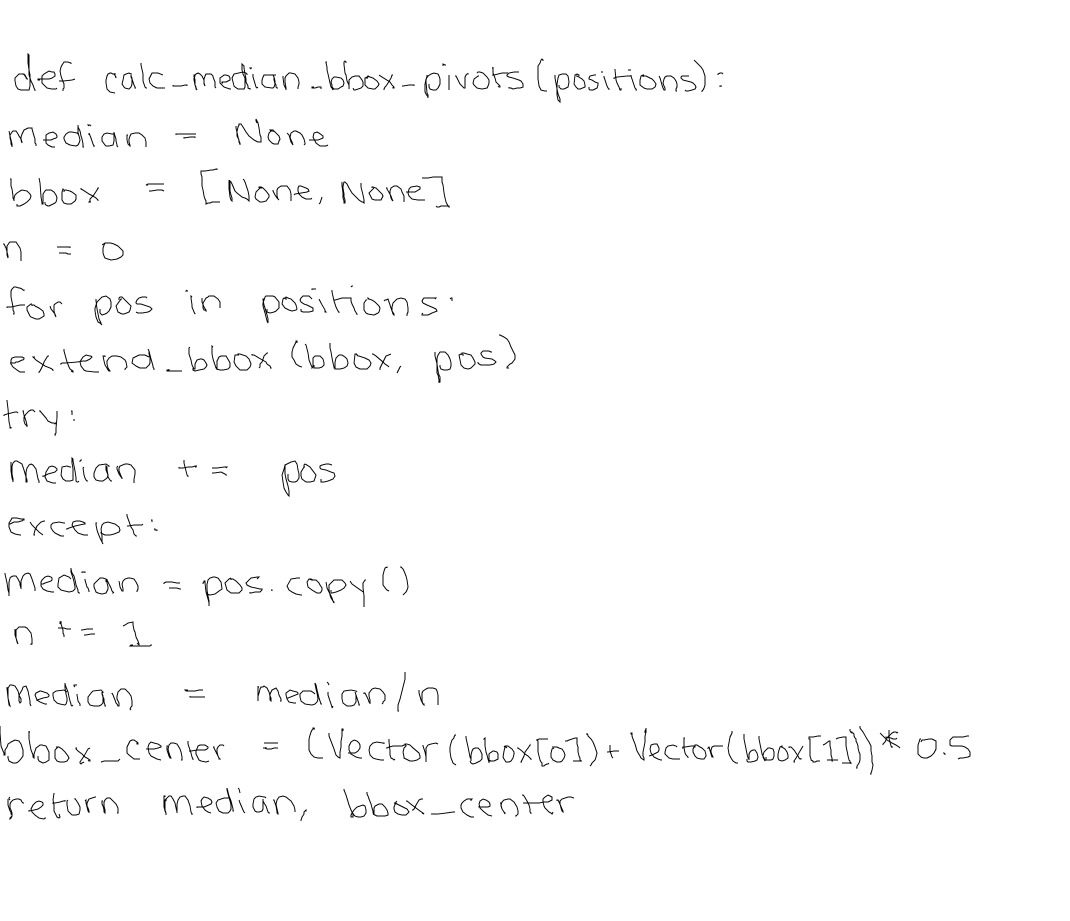 def calc_median_bbox_pivots(positions):
median = None
bbox = [None, None]
n = 0
for pos in positions:
extend_bbox(bbox, pos)
try:
median += pos
except:
median = pos.copy()
n += 1
median = median/n
bbox_center = (Vector(bbox[0])+Vector(bbox[1]))* 0.5
return median, bbox_center